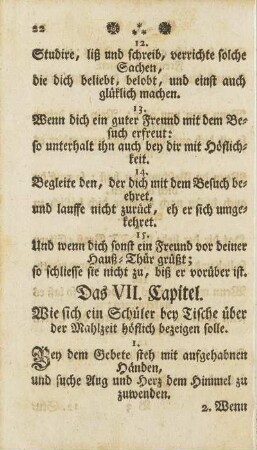 22
12.
Studire, liß und schreib, verrichte solche
Sachen,
die dich beliebt, belobt, und einst auch
glüklich machen.
13.
Wenn dich ein guter Freund mit dem Be-
such erfreut:
so unterhalt ihn auch bey dir mit Höflich-
keit.
14.
Begleite den, der dich mit dem Besuch be-
ehret,
und lauffe nicht zurück, eh er sich umge-
kehret.
15.
Und wenn dich sonst ein Freund vor deiner
Hauß-Thür grüßt;
so schliesse sie nicht zu, biß er vorüber ist.
Das VII. Capitel.
Wie sich ein Schüler bey Tische über
der Mahlzeit höflich bezeigen solle.
1.
Bey dem Gebete steh mit aufgehabnen
Händen,
und suche Aug und Herz dem Himmel zu
zuwenden.
2. Wenn